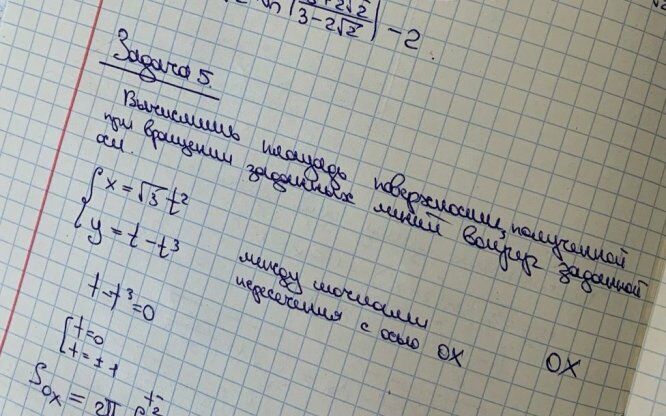 3 - 2√2 | - 2
Задача 5.
Вычислить площадь поверхности, полученной
при вращении заданных линий вокруг заданной
оси.
{ x = √3 t²
{ y = t - t³
между точками
пересечения с осью OX
OX
t - t³ = 0
[ t = 0
[ t = ± 1
S OX = 2π